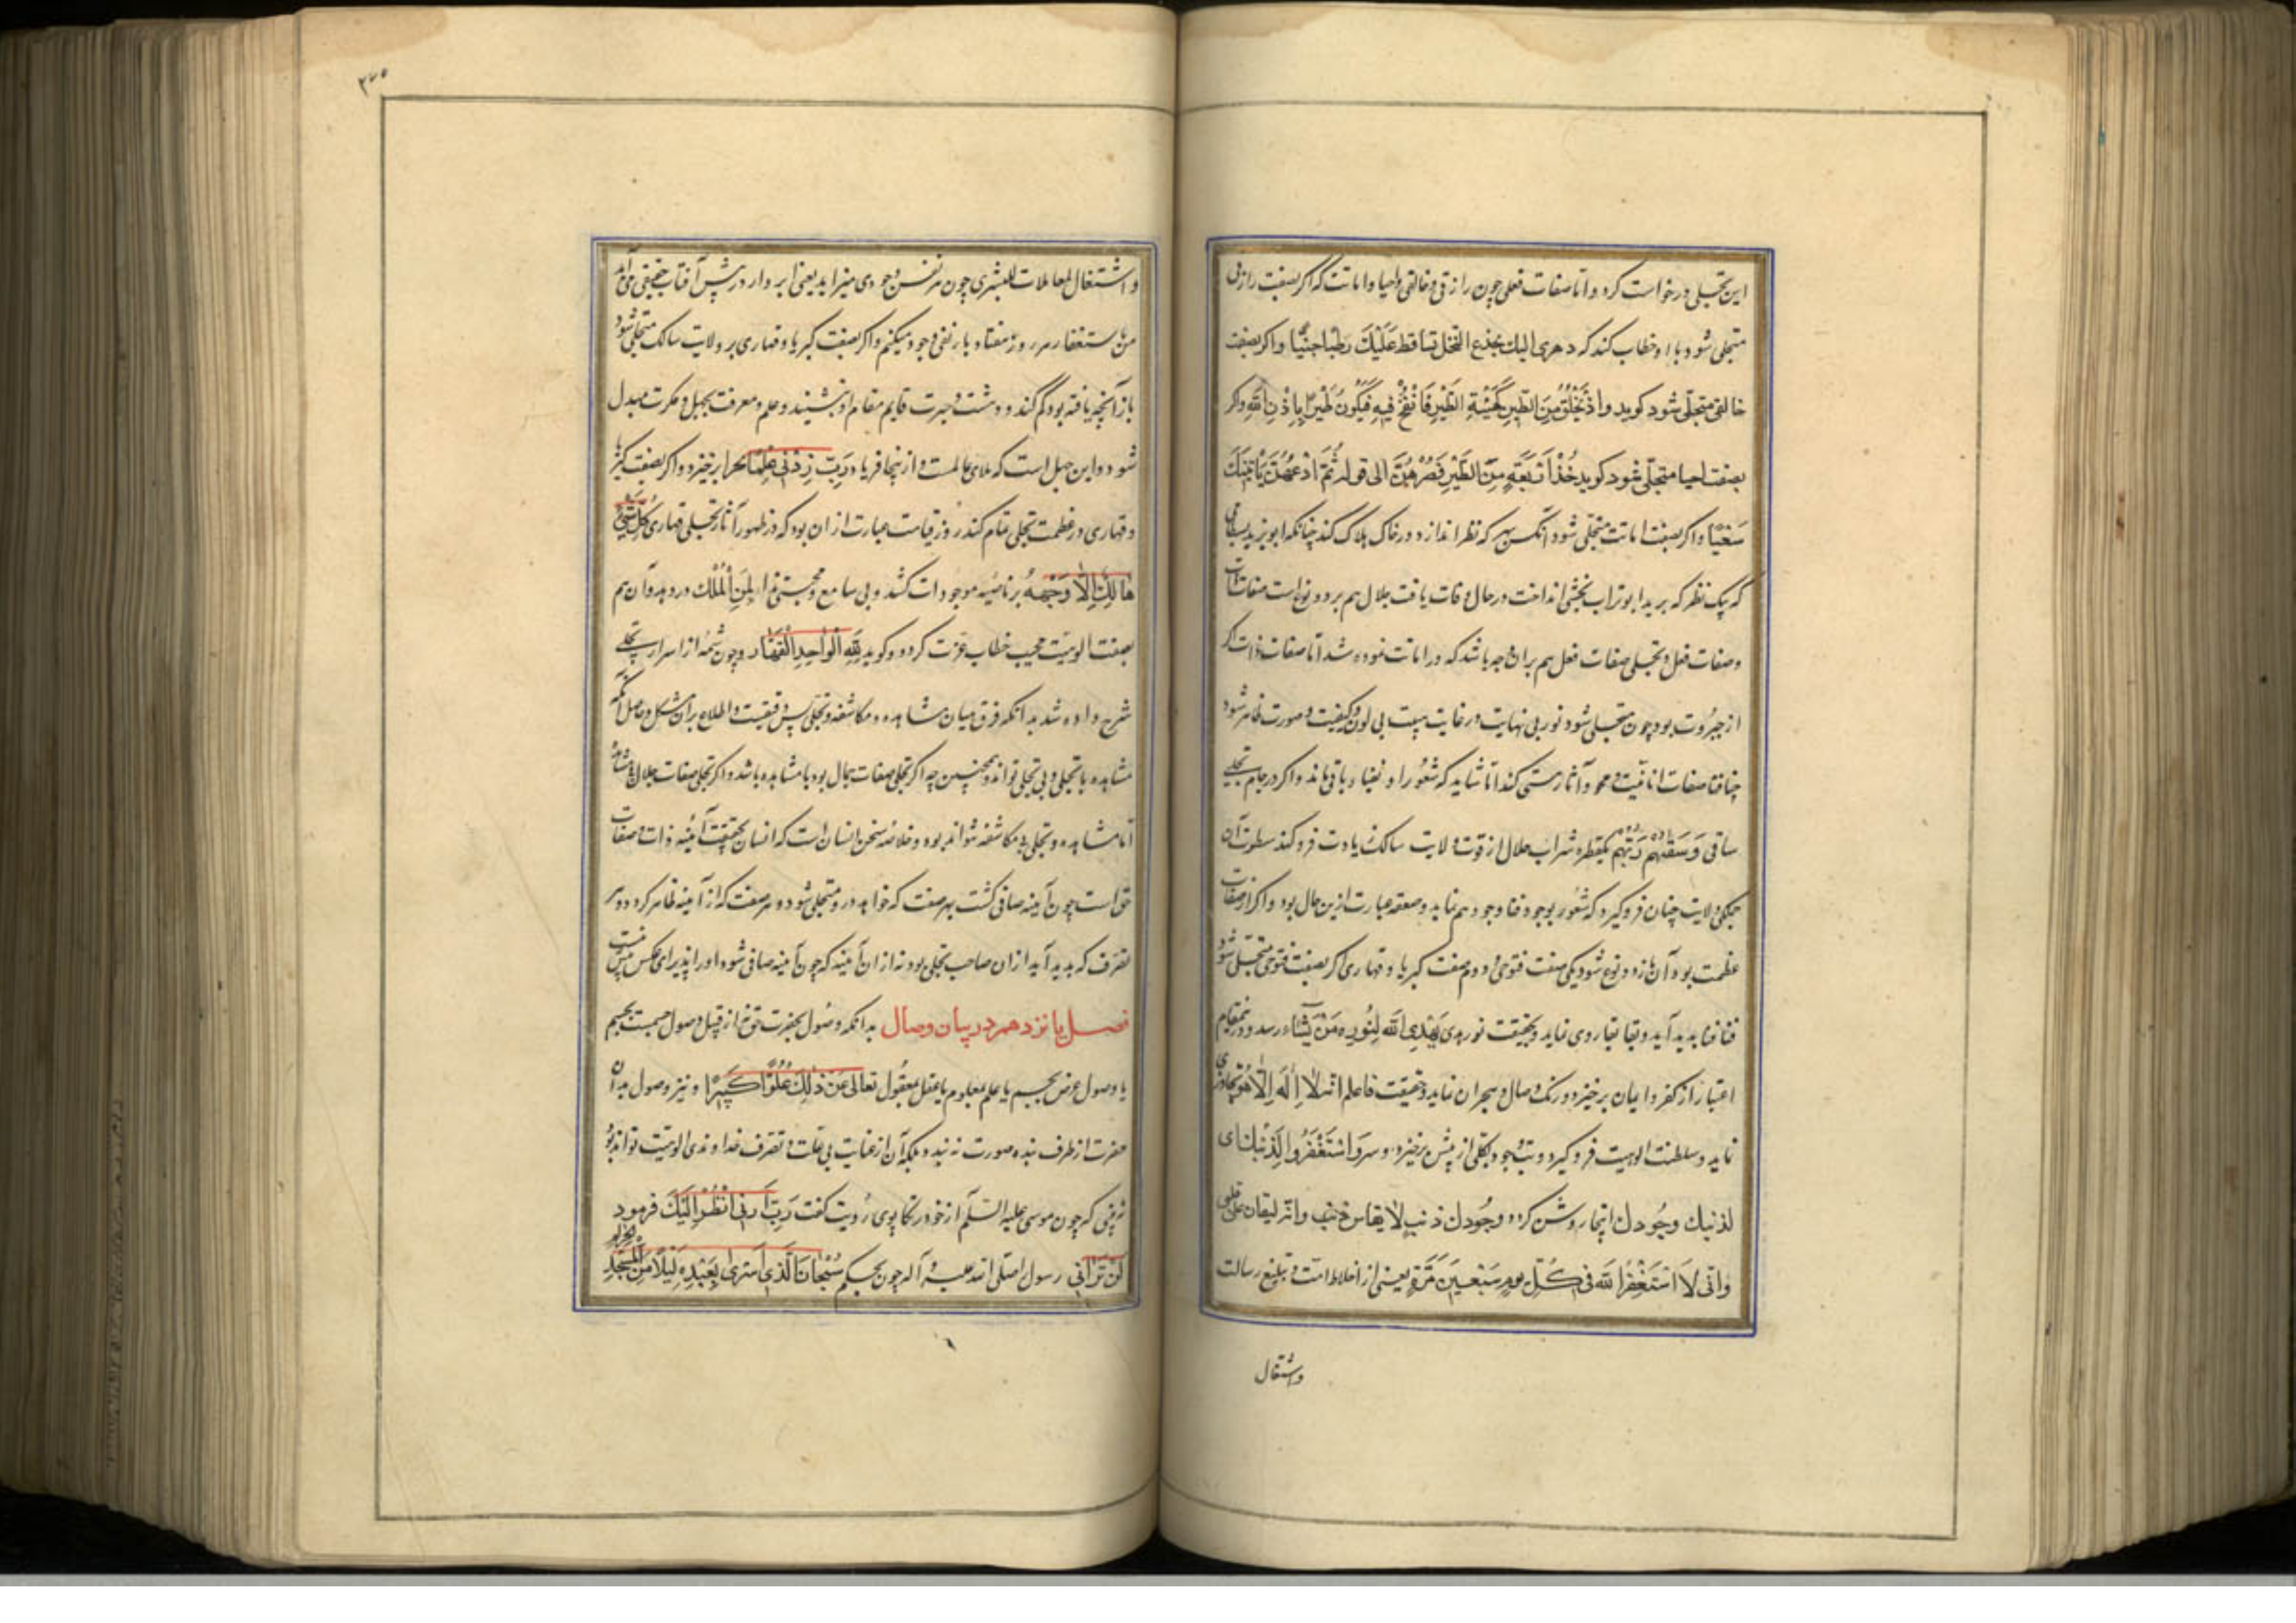 این تجلی درخواست کرد و اما صفات فعلی چون رازقی و خالقی و احیا و اماتت که اگر بصفت رازقی
متجلی شود با او خطاب کند که و هزی الیك بجذع النخل تساقط عَلَیْكَ رطبا جنیّا و اگر بصفت
خالقی متجلّی شود کوید و اذ تَخْلُقُ مِنَ الطّینِ کَهَیْئَةِ الطّیْرِ فَانفُخُ فیهِ فَیَکُونُ طَیْرًا بِاِذْنِ اللهِ و کر
بصفت احیا متجلّی شود کوید خُذْ اَرْبَعَةً مِنَ الطَّیْرِ فَصُرْهُنَّ الی قوله ثُمَّ ادْعُهُنَّ یَأتینَكَ
سَعْیًا و اکر بصفت اماتت متجلّی شود آنکس بهر که نظر اندازد در خاک هلاک کند چنانکه ابو یزید بسطامی
که یک نظر که بر ید ابوتراب نخشبی انداخت در حال وفات یافت جلال هم بر دو نوع است صفات ذات
و صفات فعل و تجلی صفات فعل هم بران وجه باشد که در اماتت نموده شد اما صفات ذات اکر
از جبروت بود چون متجلی شود نور بی نهایت در غایت هیبت بی لون و کیفیت و صورت ظاهر شود
چنا فنا صفات انانیت و محو آثار هستی کند اما شاید که شعور او بفناء باقی ماند و اکر در جام تجلی
ساقی وَسَقیٰهُمْ رَبُّهُم یکقطره شراب جلال از قوت ولایت سالک زیادت فرو کند سطوت آن
جمکی ولایت چنان فرو کیرد که شعور بوجود فنا وجود هم نماید و صعقه عبارت ازین حال بود و اکر از صفات
عظمت بود آن باز دو نوع شود یکی صفت قیومی و دوم صفت کبریا و قهاری اکر بصفت قیومی متجلی شود
فنا فنا پدید آید و بقا بقا روی نماید و بحقیقت نور یهدی یَهْدِی الله لِنُورِهِ مَنْ یَشَاء رسد و در نمقام
اعتبار از کفر و ایمان برخیزد و رنک وصال و هجران نماید و حقیقت فاعلم انه لا اِلٰهَ اِلَّا هُوَ تجاوزی
نماید و سلطنت الوهیت فرو کیرد و بت وجود بکلی از پیش برخیزد و سر وَاسْتَغْفِرُوا لِذَنْبِك ای
لذنبك وجُودك اینجا روشن کردد وجُودك ذنب لا یقاس به ذنب و انه لیغان علی قلبی
وانی لاَاَسْتَغْفِرُ الله فی کُلّ یومٍ سَبْعینَ مَرَّة یعنی از اخلاط امت و تبلیغ رسالت
و اشتغال
۳۷۵
و اشتغال بمعاملات البشری چون هر نفس وجودی میزاید یعنی ابر وار در پیش آفتاب حقیقی می آید
من باستغفار هر روز هفتاد بار نفی وجود میکنم و اکر بصفت کبریا و قهاری بر ولایت سالک متجلی شود
باز آنچه یافته بود کم کند و دهشت و حیرت قایم مقام او بنشیند و علم و معرفت بجهل و نکرت مبدل
شود و این جهل است که ملای عالمست و از ینجا فریاد رَبّ زِدْنی عِلْمًا تحیرا برخیزد و اکر بصفت کبریا
و قهاری در عظمت تجلی تمام کند روز قیامت عبارت از ان بود که در ظهور آثار تجلی قهاری کُلُّ شَیْءٍ
هَالِكٌ اِلاَّ وَجْهَهُ بر ناصیه موجودات کشد و بی سامع و مجیبی ندا لِمَنِ الْمُلْك در دهد و آن هم
بصفت الوهیت مجیب خطاب عزت کردد و کوید لِلّهِ الْوَاحِدِ الْقَهَّار و چون شمهٔ از اسرار تجلی
شرح داده شد بدانکه فرق میان مشاهده و مکاشفه و تجلی پس دقیقست و اطلاع بران مشکل و حاصل آنکه
مشاهده با تجلی و بی تجلی تواند و همچنین چه اکر تجلی صفات جمال بود با مشاهده باشد و اکر تجلی صفات جلال بی مشاهده
اما مشاهده و تجلی بی مکاشفه نتواند بود و خلاصه سخن انسان است که انسان بحقیقت آئینه ذات و صفات
حق است چون آینه صافی کشت بهر صفت که خواهد در و متجلی شود و هر صفت که از آینه ظاهر کردد و هر
تصرف که پدید آید از ان صاحب تجلی بود نه از ان آینه که چون آینه صافی شود او را پذیرای عکس بیش نیست
فصل پانزدهم در بیان وصال بدانکه وصُول بحضرت حق نه از قبیل وصول جسمست بجسم
یا وصول عرض بجسم یا علم بمعلوم یا عقل بمعقُول تعالی عَنْ ذٰلِكَ عُلُوًّا کَبیرًا و نیز وصول بدان
حضرت از طرف بنده صورت نه بندد بلکه آن از عنایت بی علت و تصرف خداوندی الوهیت تواند بود
نه بینی که چون موسی علیه السّلم از خود در تکاپوی رُویت کفت رَبّ اَرِنی اَنْظُرْ اِلَیْكَ فرمود
لَنْ تَرٰانی رسول الله صلی الله علیه و آله چون بحکم سُبْحَانَ الَّذی اَسْرَیٰ بِعَبْدِهِ لَیْلاً مِنَ الْمَسْجِدِ الحرام